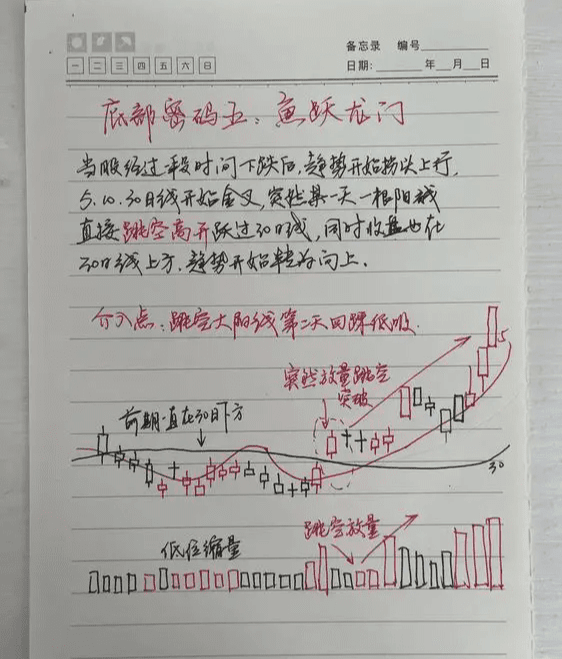 备忘录 编号
一 二 三 四 五 六 日
日期: 年 月 日
底部密码五：鱼跃龙门
当股经过一段时间下跌后,趋势开始拐以上行,
5.10.30日线开始金叉,突然某一天一根阳线
直接跳空高开跃过30日线,同时收盘也在
30日线上方.趋势开始转为向上.
介入点：跳空大阳线第二天回踩低吸.
突然放量跳空
突破
5
前期一直在30日下方
30
跳空放量
低位缩量